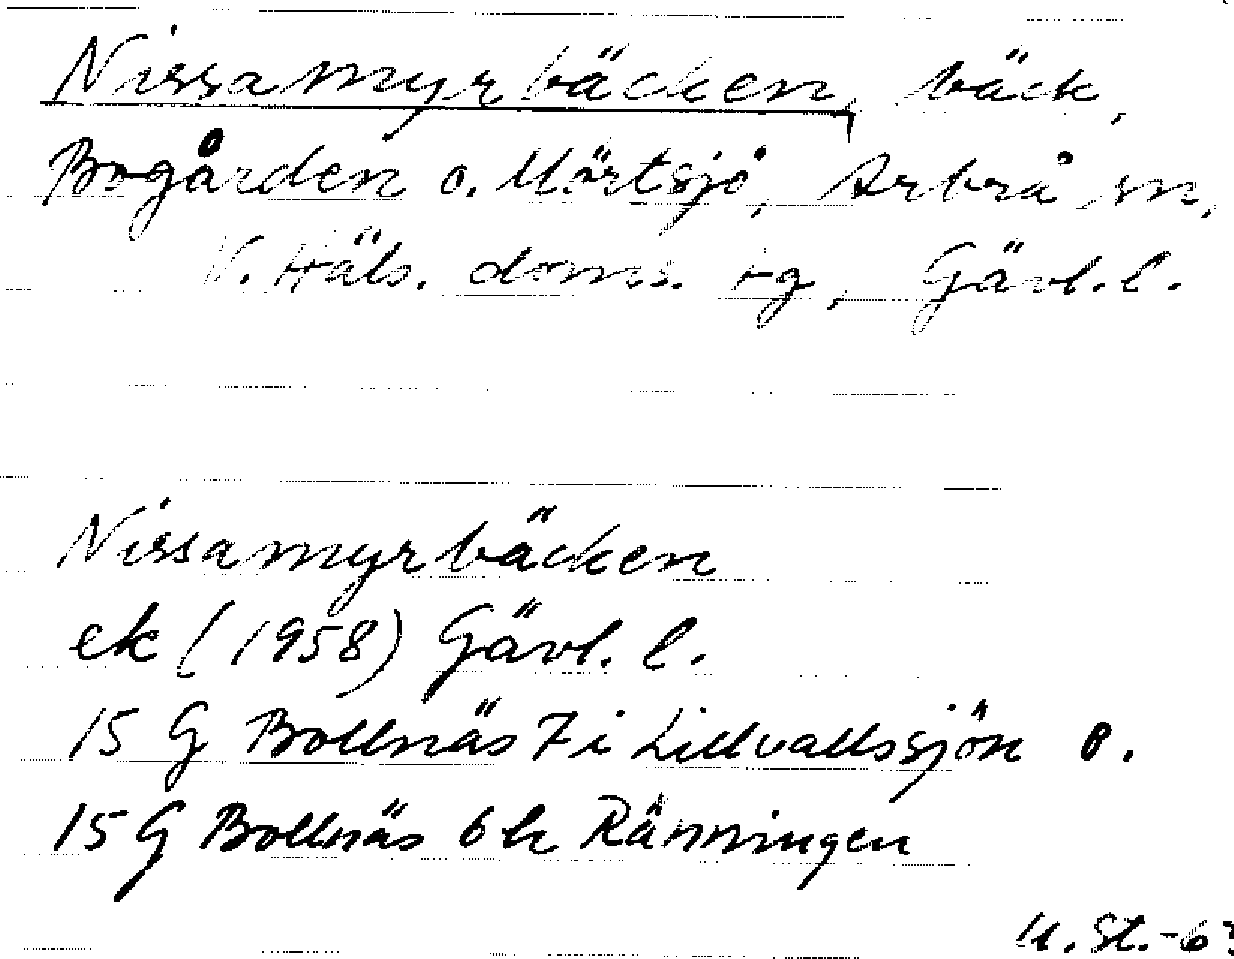 Nissamyrbäcken, bäck,
Bogården o. Mörtsjö, Arbrå sn,
V. Häls. doms. tg, Gävl. l.
Nissamyrbäcken
ek (1958) Gävl. l.
15 G Bollnäs 7 i Lillvallssjön o.
15 G Bollnäs 6 h Ränningen
U. St. -63